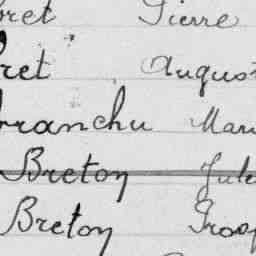 oret Pierre
oret Augus
orranchu Mari
Breton Jule
Breton Prosp